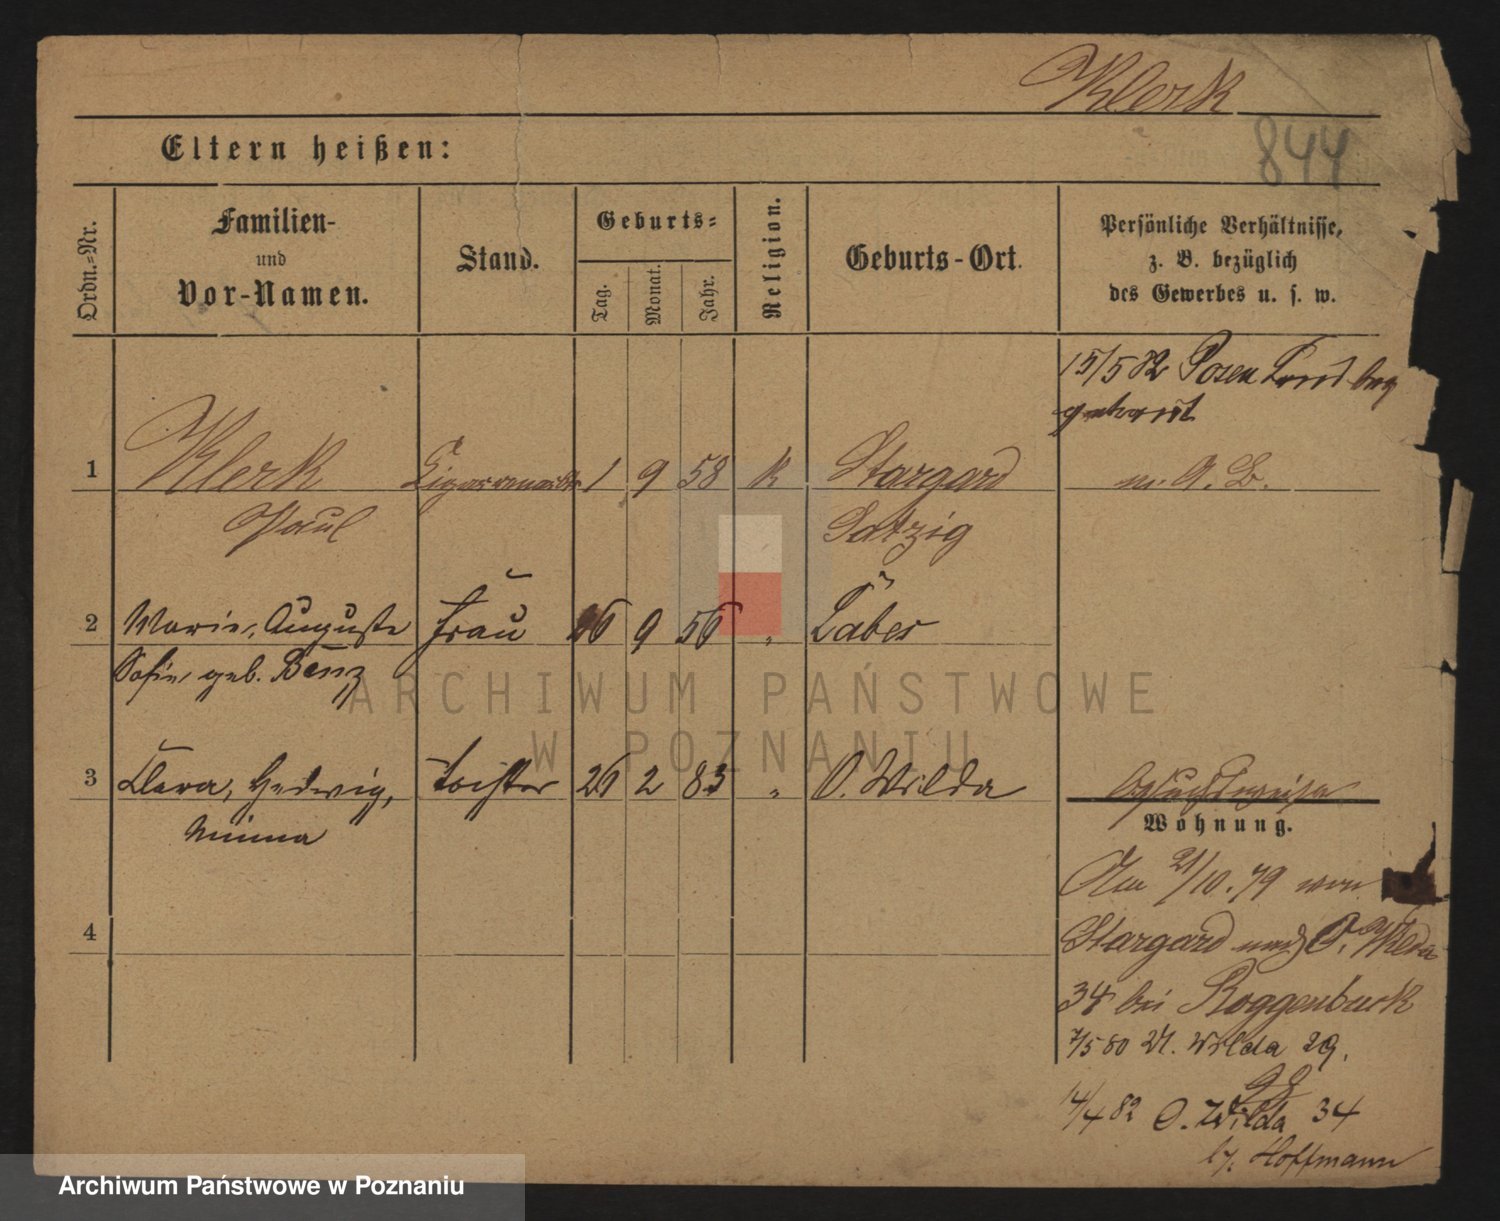 Klerk
844
Eltern heißen:
Ordn.-Nr.
Familien-
und
Vor-Namen.
Stand.
Geburts-
Tag.
Monat.
Jahr.
Religion.
Geburts-Ort.
Persönliche Verhältnisse,
z. B. bezüglich
des Gewerbes u. s. w.
15/5 82 Posen
1 Klerk 1 9 58 k Stargard
Paul Satzig
2 Marie, Auguste Frau 9 56 " Labes
Sofie, geb. Benz
3 Clara, Hedwig, Tochter 26 2 83 " O. Wilda
Minna
Wohnung.
Am 21/10.79 von
Stargard nach O. Wilda
34 bei Roggenbuck
7/5 80 Wilda 29.
14/4 82 O. Wilda 34
Hoffmann
4
ARCHIWUM PAŃSTWOWE
W POZNANIU
Archiwum Państwowe w Poznaniu